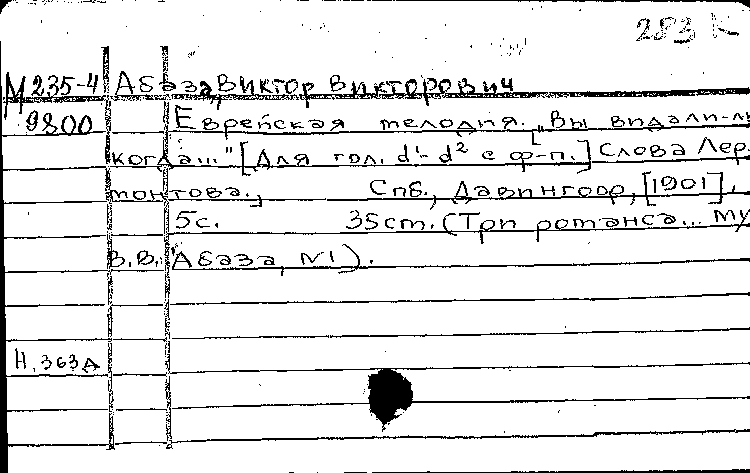 283 К
М 235-4 Абаза, Виктор Викторович
9800 Еврейская мелодия. "Вы видали-ль
когда..." [Для гол. d¹-d² с ф-п.] Слова Лер-
монтова.
Спб., Давингоф, [1901],
5с. 35ст. (Три романса... му
В.В. Абаза, №1).
Н.363А